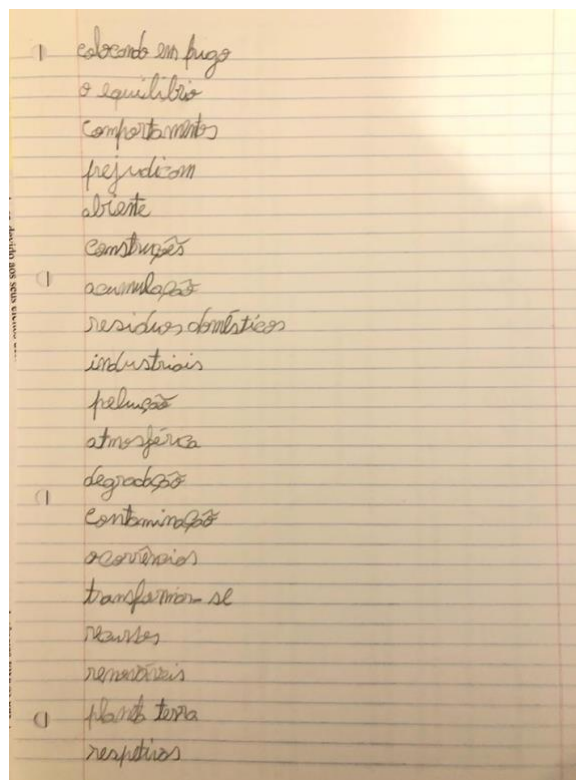 colocando em prigo
o equilíbrio
comportamentos
prejudicam
abiente
construções
acumulação
residuos domésticos
industriais
peluição
atmosférica
degradação
contaminação
ocorrências
transformar-se
recursos
renováveis
planeta terra
respetivos